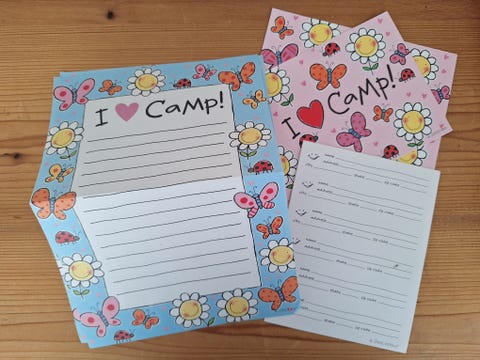 I ♥ Camp!
I ♥ Camp!
I
name
address
city state zip code
name
address
city state zip code
name
address
city state zip code
name
address
city state zip code
name
address
city state zip code